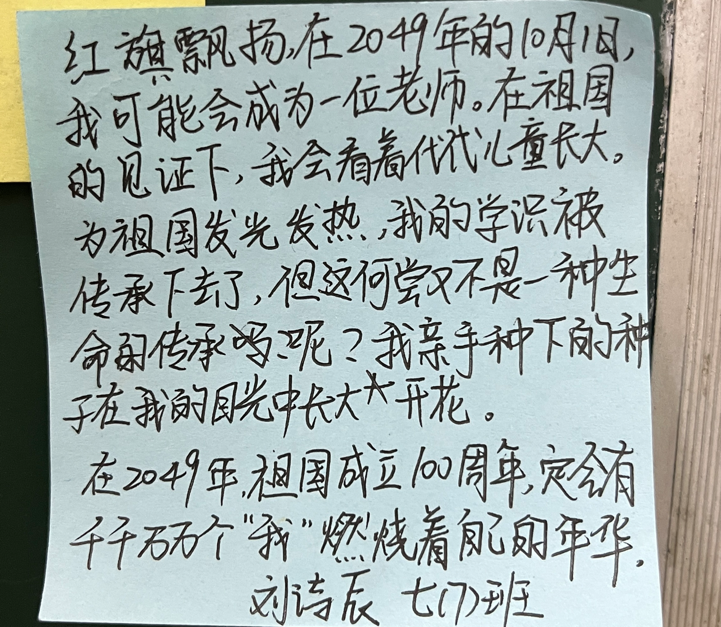 红旗飘扬,在2049年的10月1日,
我可能会成为一位老师。在祖国
的见证下,我会看着代代儿童长大。
为祖国发光发热,我的学识被
传承下去了,但这何尝又不是一种生
命的传承呢?我亲手种下的种
子在我的目光中长大开花。
在2049年,祖国成立100周年,定会有
千千万万个"我"燃烧着自己的年华.
刘诗辰 七(7)班